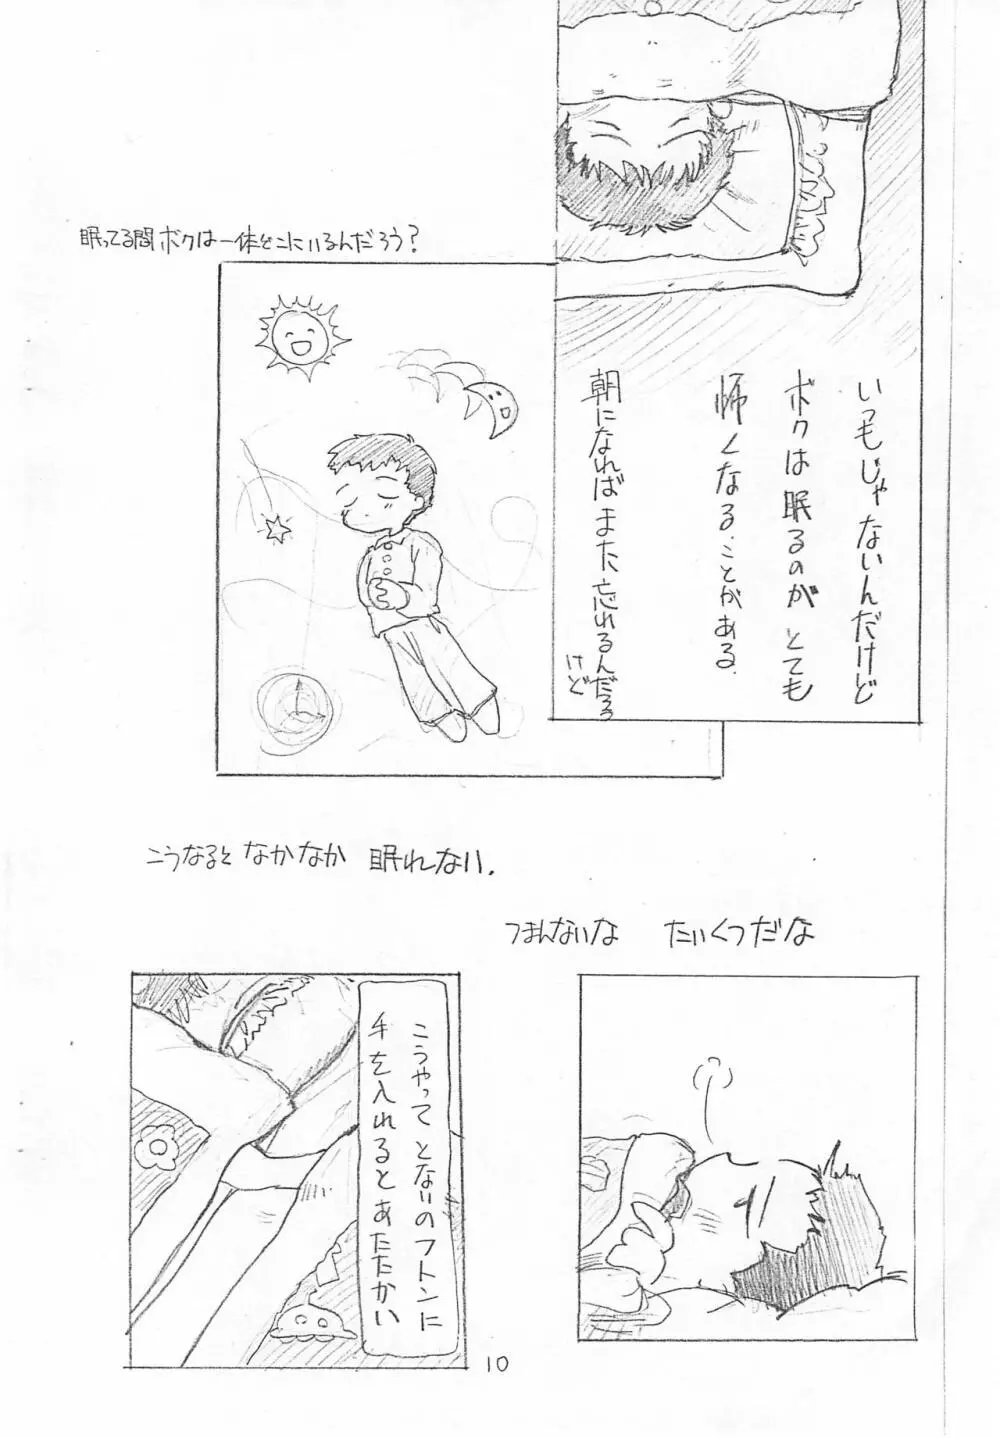 いつもじゃないんだけど
ボクは眠るのがとても
怖くなることがある.
朝になればまた忘れるんだろう
けど
眠ってる間ボクは一体どこにいるんだろう?
こうなると なかなか 眠れない.
つまんないな たいくつだな
こうやって とないのフトンに
手を入れるとあたたかい
10